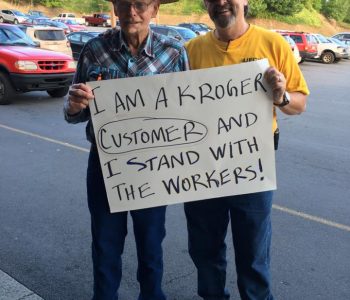 I AM A KROGER
CUSTOMER AND
I STAND WITH
THE WORKERS!